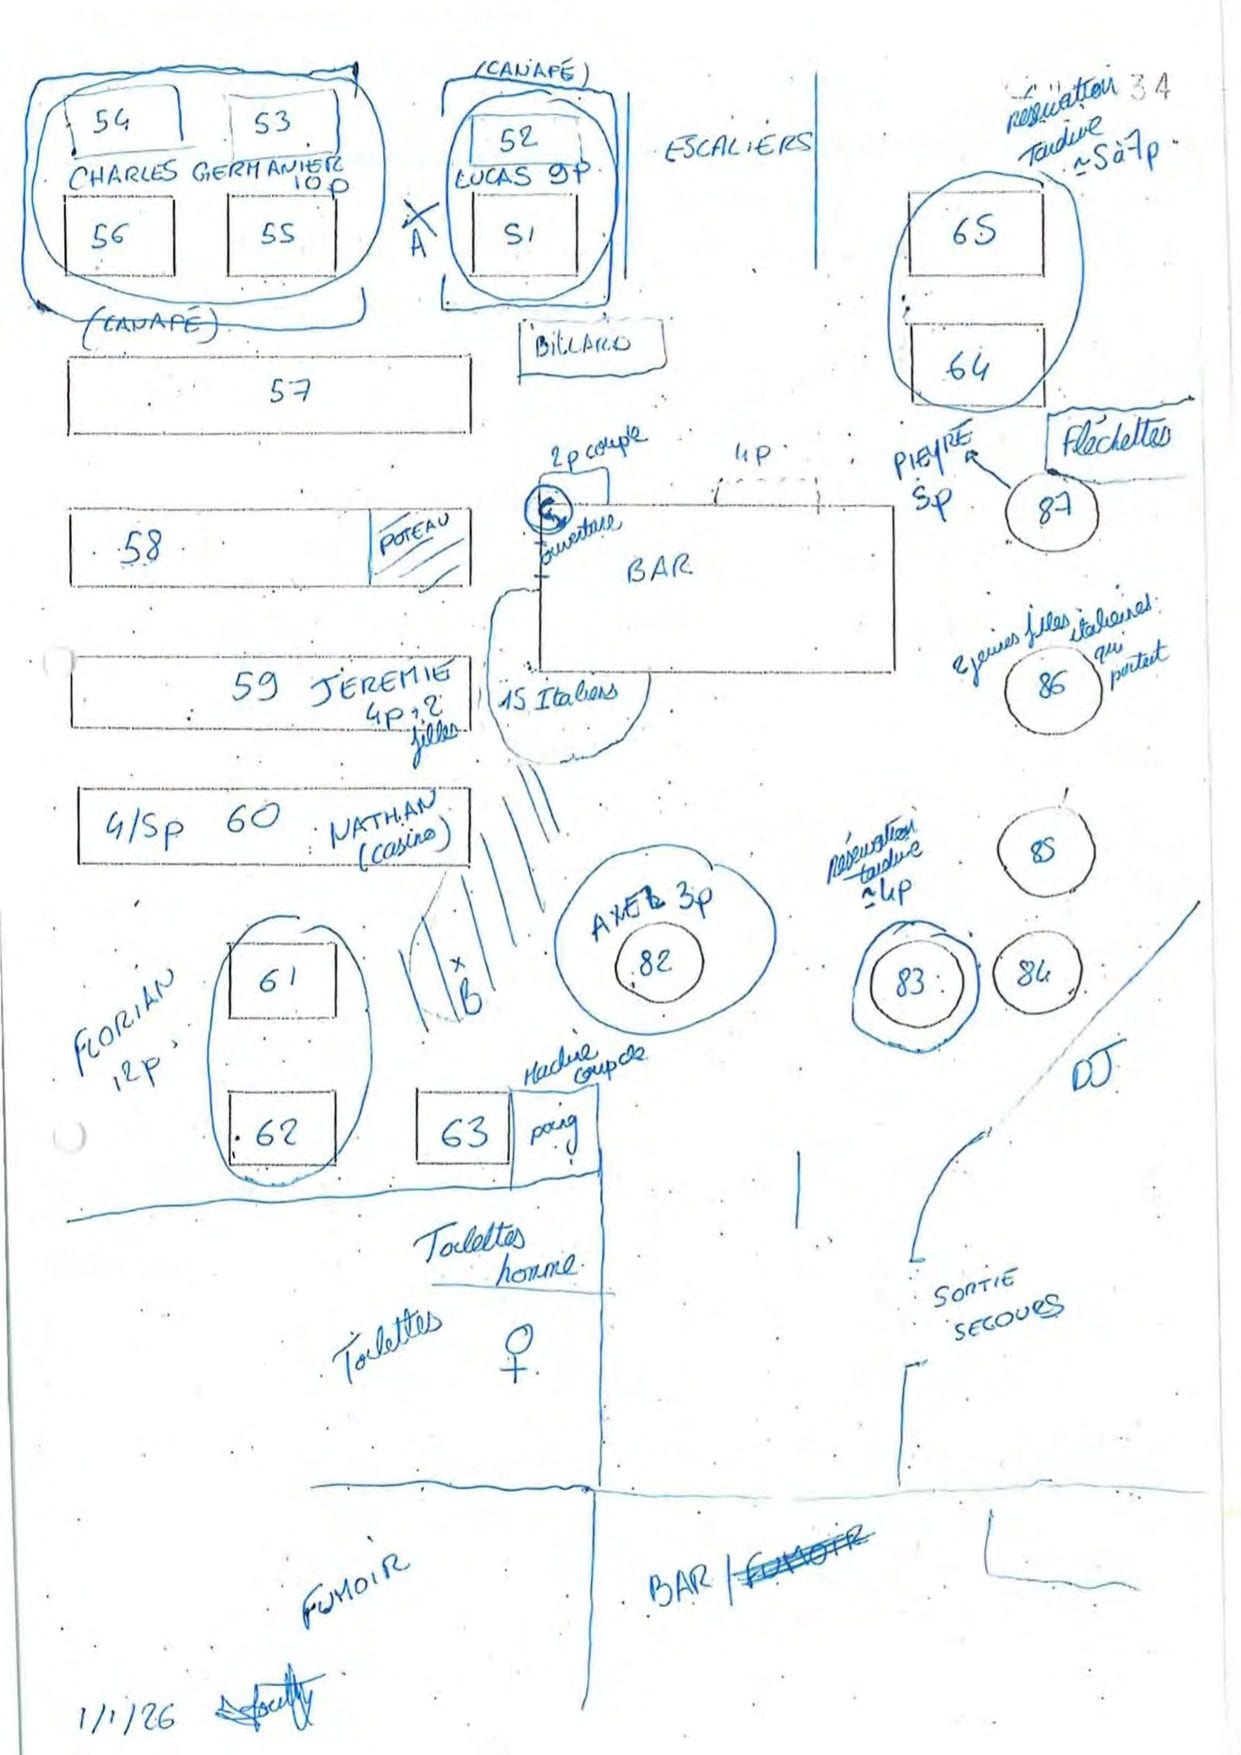 (CANAPÉ)
54
53
52
CHARLES GERMANIER
10p
LUCAS 9p
56
55
A
51
(CANAPÉ)
ESCALIERS
34
réservation
Tardive
≃5à7p
65
64
BILLARD
57
2p couple
4p
PIEYRE
5p
Fléchettes
87
58
POTEAU
ouverture
BAR
2 jeunes filles italiennes
qui
partent
86
59 JEREMIE
4p + 2
filles
15 Italiens
4/5p 60 NATHAN
(casino)
Réservation
tardive
≃4p
85
AXEL 3p
82
83
84
FLORIAN
12p
61
B
62
63
Machine
coup de
poing
DJ
Toilettes
homme
Toilettes ♀
SORTIE
SECOURS
FUMOIR
BAR / FUMOIR
1/1/26